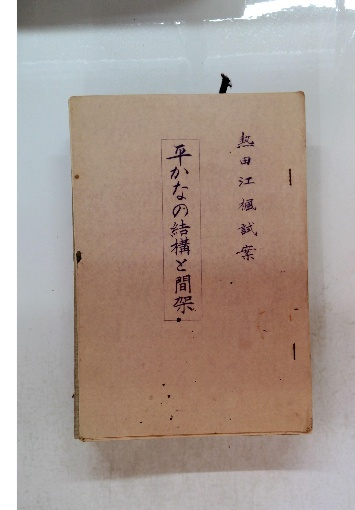 熱田江楓試案
平かなの結構と間架